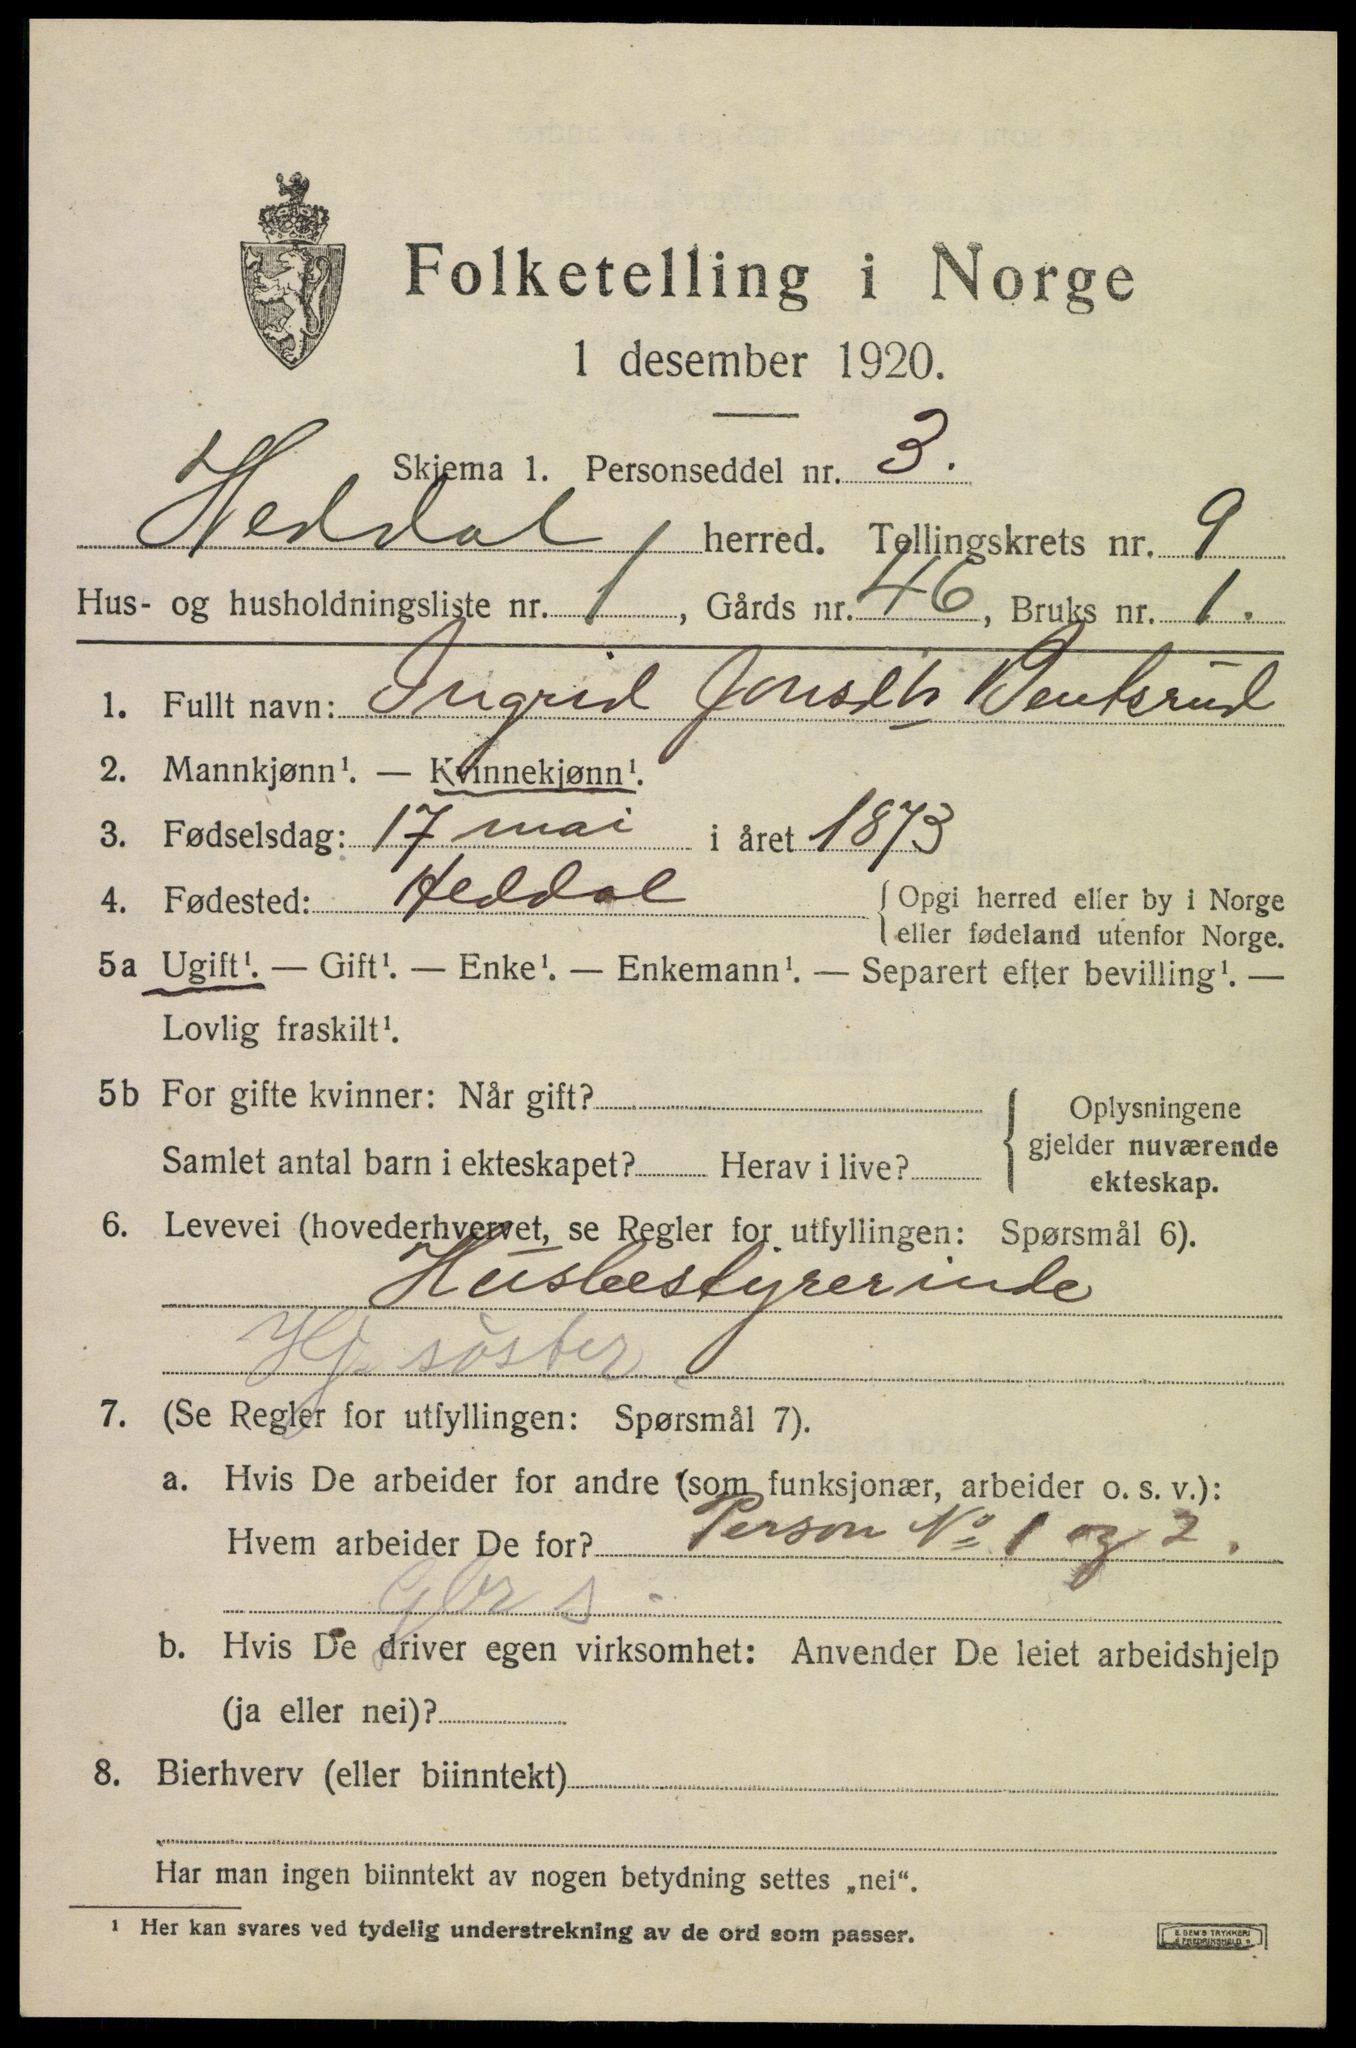 Folketelling i Norge
1 desember 1920.
Skjema 1. Personseddel nr. 3.
Heddal herred. Tellingskrets nr. 9
Hus- og husholdningsliste nr. 1, Gårds nr. 46, Bruks nr. 1.
1. Fullt navn: Ingrid Jonsdtr Bentsrud
2. Mannkjønn¹. — Kvinnekjønn¹.
3. Fødselsdag: 17 mai i året 1873
4. Fødested: Heddal {Opgi herred eller by i Norge
eller fødeland utenfor Norge.
5a Ugift¹. — Gift¹. — Enke¹. — Enkemann¹. — Separert efter bevilling¹. —
Lovlig fraskilt¹.
5b For gifte kvinner: Når gift?
Samlet antal barn i ekteskapet? Herav i live?
{ Oplysningene
gjelder nuværende
ekteskap.
6. Levevei (hovederhvervet, se Regler for utfyllingen: Spørsmål 6).
Husbestyrerinde
Hj. søster
7. (Se Regler for utfyllingen: Spørsmål 7).
a. Hvis De arbeider for andre (som funksjonær, arbeider o. s. v.):
Hvem arbeider De for? Person No 1 og 2.
Gbr s
b. Hvis De driver egen virksomhet: Anvender De leiet arbeidshjelp
(ja eller nei)?
8. Bierhverv (eller biinntekt)
Har man ingen biinntekt av nogen betydning settes „nei“.
¹ Her kan svares ved tydelig understrekning av de ord som passer.
E. SEM'S TRYKKERI
FREDRIKSHALD